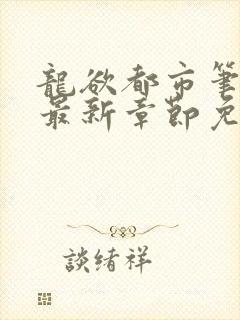 龍欲都市筆
最新章節免
談緒祥